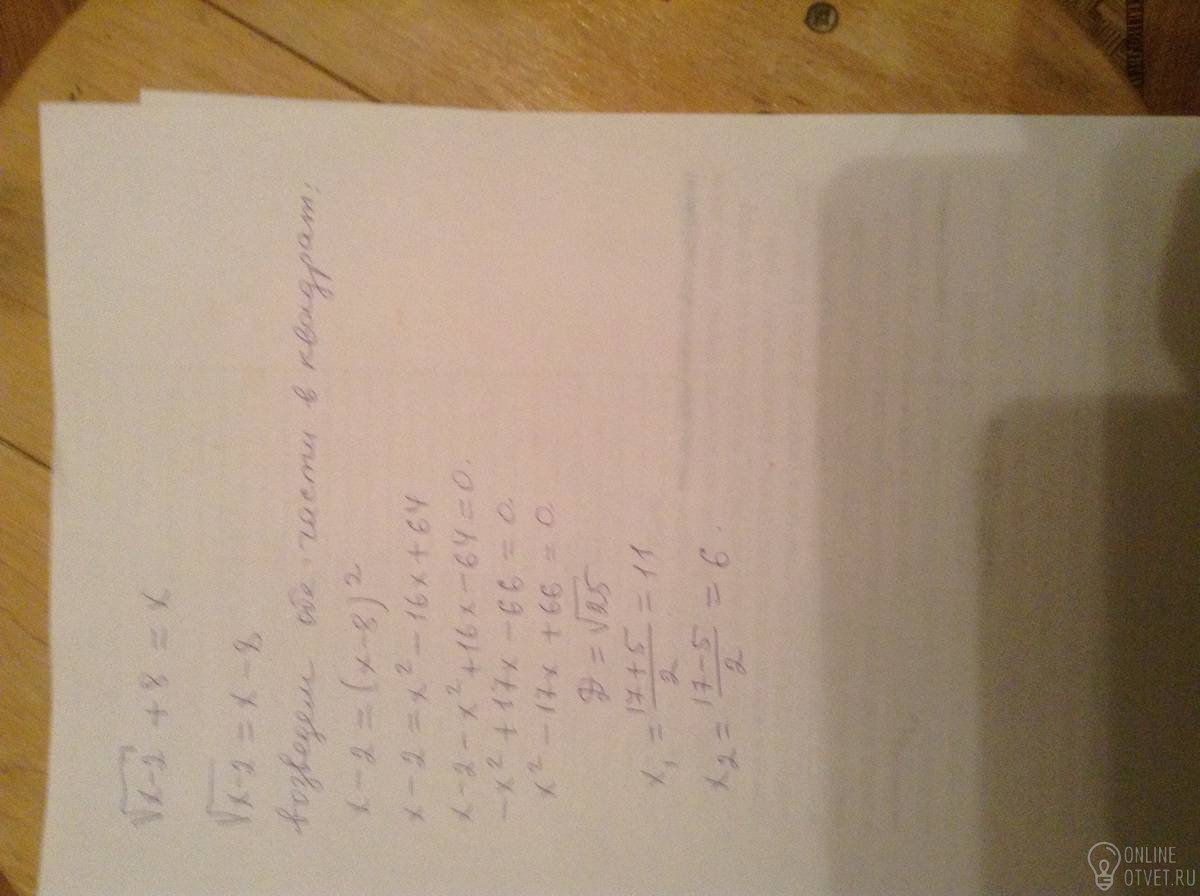 √x-2 + 8 = x
√x-2 = x - 8
возведем обе части в квадрат:
x - 2 = (x-8)²
x - 2 = x² - 16x + 64
x - 2 - x² + 16x - 64 = 0.
-x² + 17x - 66 = 0.
x² - 17x + 66 = 0.
D = √25
x₁ = (17+5)/2 = 11
x₂ = (17-5)/2 = 6.
ONLINE
OTVET.RU